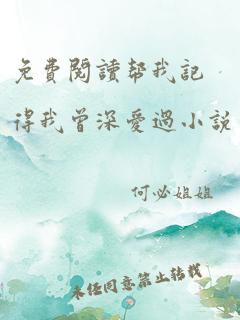 免費閱讀幫我記
得我曾深愛過小說
何必姐姐
未經同意禁止轉載